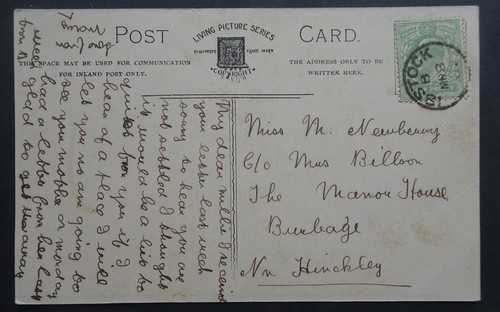 POST CARD.
LIVING PICTURE SERIES
REGISTERED TRADE MARK
COPYRIGHT
THIS SPACE MAY BE USED FOR COMMUNICATION
FOR INLAND POST ONLY.
THE ADDRESS ONLY TO BE
WRITTEN HERE.
Miss M. Newberry
C/o Mrs Billoon
The Manor House
Burbage
Nr Hinckley
My dear millie I received
your letter last week
sorry to hear you are
not settled I thought
it would be a bit to
quiet for you if I
hear of a place I will
let you no am going to
see you mother on monday
had a letter from her last
week
glad to get away
from